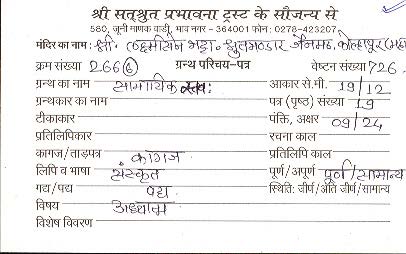 श्री सत्श्रुत प्रभावना ट्रस्ट के सौजन्य से
580, जूनी माणक वाडी, भाव नगर - 364001 फोन : 0278-423207
मंदिर का नाम : श्री. लक्ष्मीसेन भट्टा. श्रुतभण्डार जैनमठ, कोल्हापूर (महा)
क्रम संख्या 266 ग्रन्थ परिचय-पत्र वेष्टन संख्या 726
ग्रन्थ का नाम सामायिक स्तवः आकार से.मी. 19/12
ग्रन्थकार का नाम पत्र (पृष्ठ) संख्या 19
टीकाकार पंक्ति, अक्षर 09/24
प्रतिलिपिकार रचना काल
कागज/ताड़पत्र कागज प्रतिलिपि काल
लिपि व भाषा संस्कृत पूर्ण/अपूर्ण पूर्ण/सामान्य
गद्य/पद्य पद्य स्थिति: जीर्ण/अति जीर्ण/सामान्य
विषय अध्यात्म
विशेष विवरण